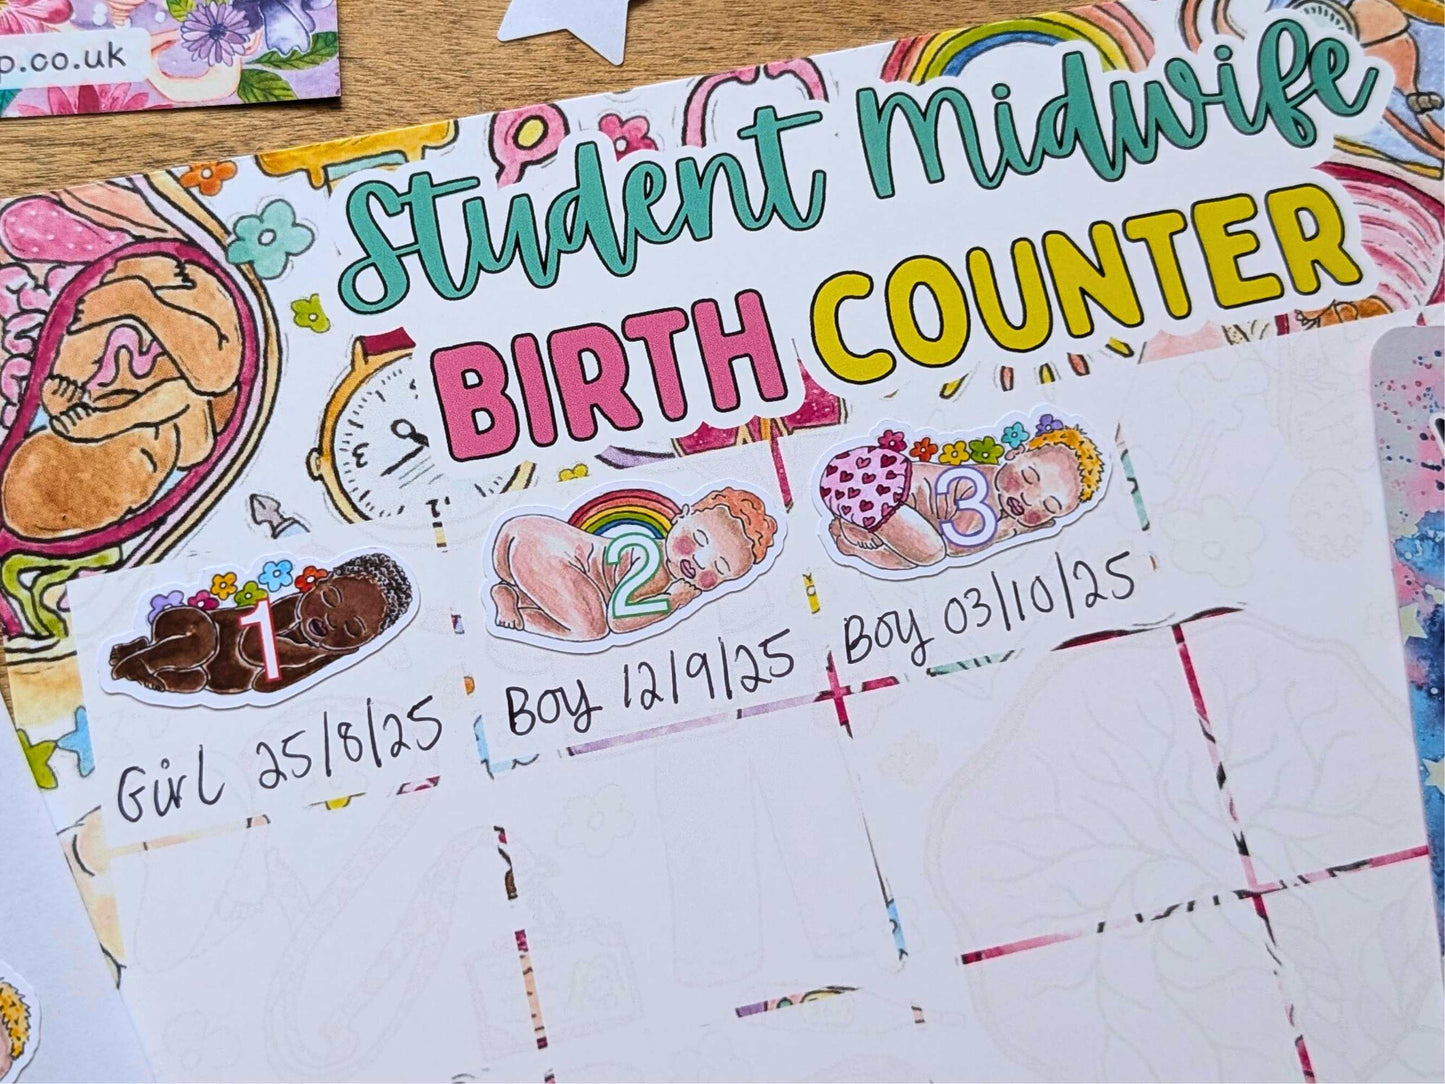 p.co.uk
Student Midwife
BIRTH COUNTER
1
2
3
Girl 25/8/25
Boy 12/9/25
Boy 03/10/25